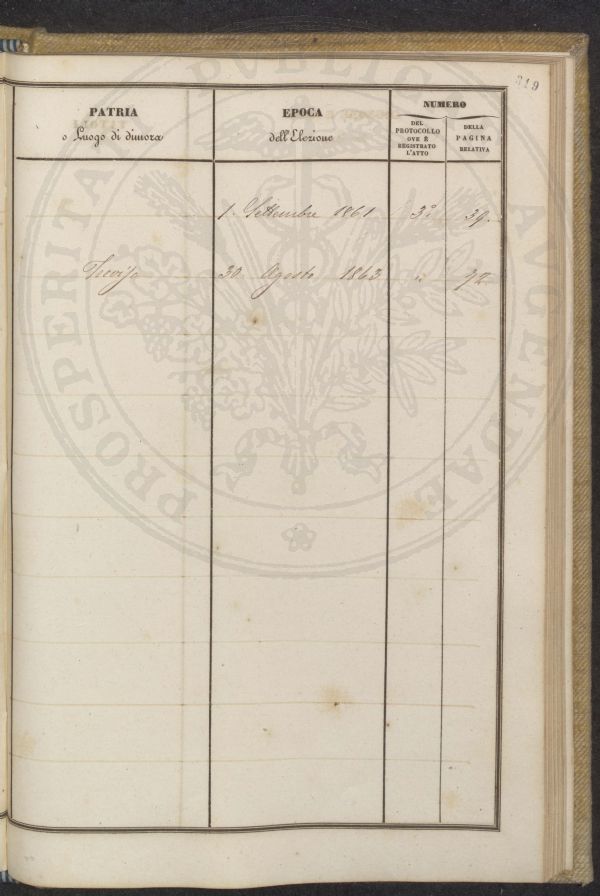 319
PATRIA
o Luogo di dimora
EPOCA
dell'Elezione
NUMERO
DEL
PROTOCOLLO
OVE È
REGISTRATO
L'ATTO
DELLA
PAGINA
RELATIVA
1. Settembre 1861 3º 39.
30 Agosto 1863 " 92
PROSPERITATI PUBLICAE AUGENDAE